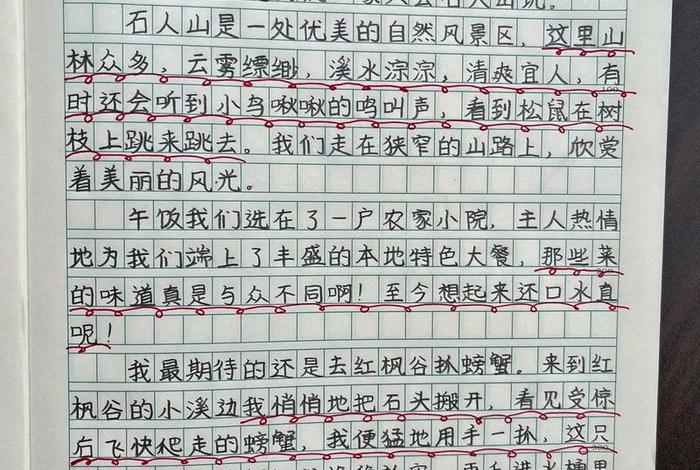 石人山是一处优美的自然风景区，这里山
林众多，云雾缥缈，溪水淙淙，清爽宜人，有
时还会听到小鸟啾啾的鸣叫声，看到松鼠在树
枝上跳来跳去。我们走在狭窄的山路上，欣赏
着美丽的风光。
午饭我们选在了一户农家小院，主人热情
地为我们端上了丰盛的本地特色大餐，那些菜
的味道真是与众不同啊！至今想起来还口水直
呢！
我最期待的还是去红枫谷扒螃蟹。来到红
枫谷的小溪边我悄悄地把石头搬开，看见受惊
后飞快爬走的螃蟹，我便猛地用手一扒，这只